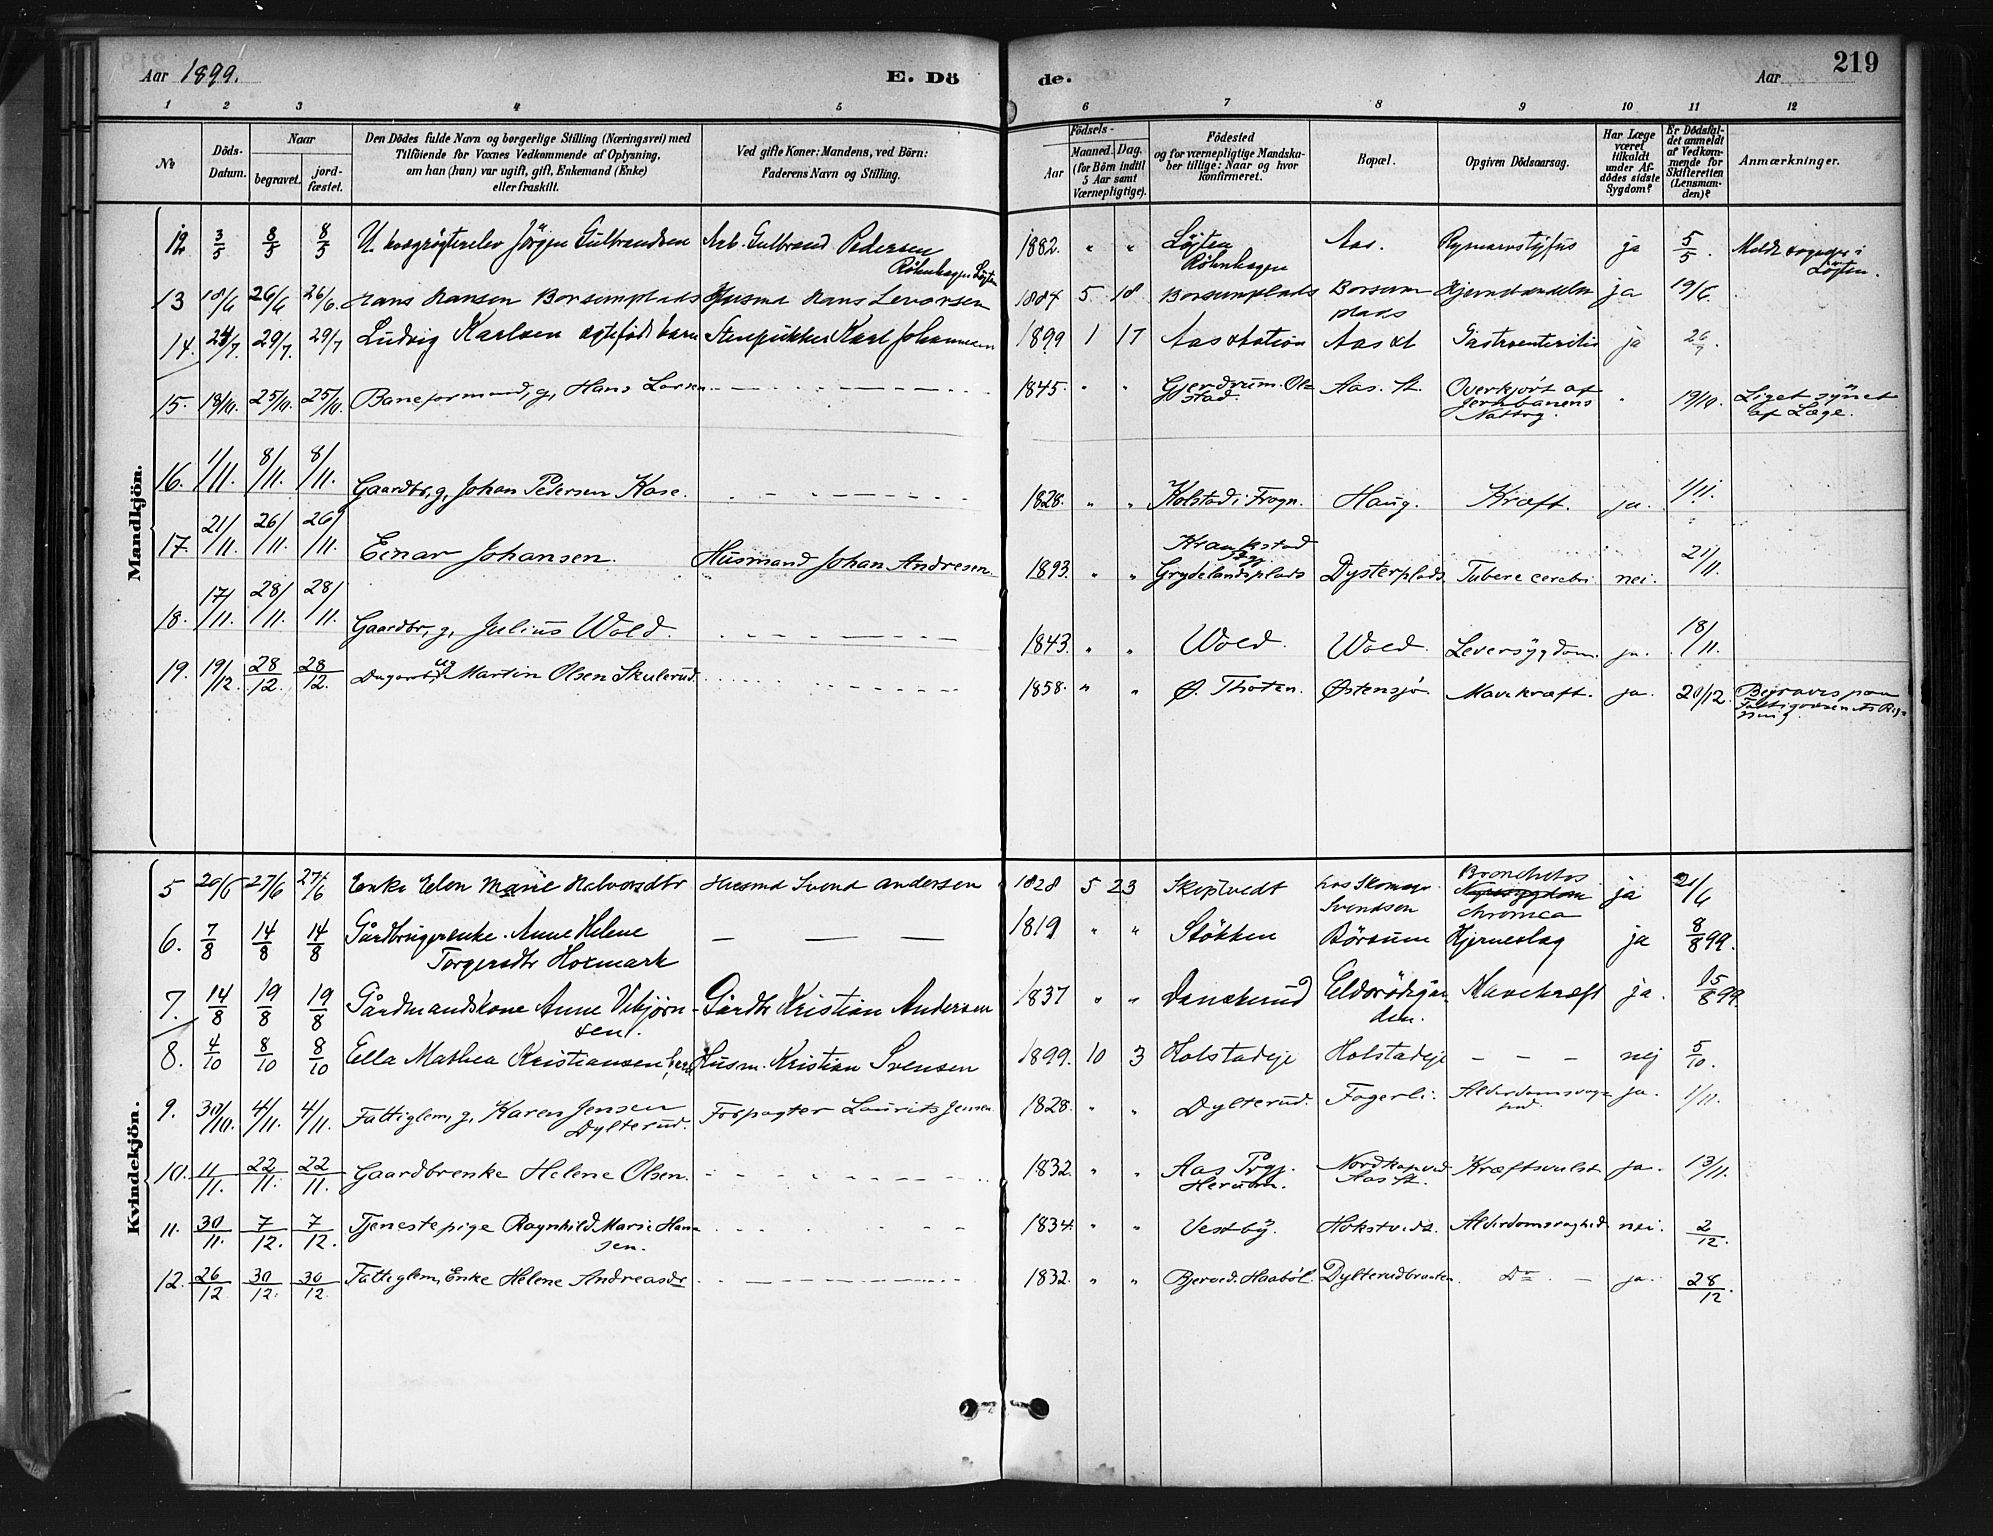 Aar 1899. E. Dö de. Aar 219
1 2 3 4 5 6 7 8 9 10 11 12
No Döds-Datum. Naar begravet. jordfæstet. Den Dödes fulde Navn og borgerlige Stilling (Næringsvei) med Tilföiende for Voxnes Vedkommende af Oplysning, om han (hun) var ugift, gift, Enkemand (Enke) eller fraskilt. Ved gifte Koner: Mandens, ved Börn: Faderens Navn og Stilling. Födsels- Aar Maaned. Dag. (for Börn indtil 5 Aar samt Værnepligtige). Födested og for værnepligtige Mandskaber tillige: Naar og hvor konfirmeret. Bopæl. Opgiven Dödsaarsag. Har Læge været tilkaldt under Afdödes sidste Sygdom? Er Dödsfaldet anmeldt af Vedkommende for Skifteretten (Lensmanden)? Anmærkninger.
Mandkjön.
12 3/5 8/5 8/5 U. Jörgen Gulbrandsen Arb. Gulbrand Pedersen Röhnhagen Löjten 1882. " " Löjten Röhnhagen Aas. ja 5/5. Löjten.
13 18/6 26/6 26/6. Hans Hansen Borsumplads Husmd Hans Levorsen 1884 5 18 Borsumplads Borsumplads ja 19/6.
14. 24/7. 29/7. 29/7 Ludvig Karlsen ægtefödt barn Stenpukker Karl Johannesen 1899 1 17 Aas station Aas st Gastroenteritis ja 26/7.
15. 18/10. 25/10. 25/10. Baneformand, g, Hans Larsen 1845. " " Gjerdrum. Olstad. Aas. St. Overkjört af Jernbanens Nattog. 19/10. Liget synet af Læge.
16. 1/11. 8/11. 8/11. Gaardbr, g, Johan Pedersen Kase. 1828. " " Kolstad i Frogn. Haug. Kræft. ja. 1/11.
17. 21/11. 26/11. 26/11. Einar Johansen. Husmand Johan Andresen. 1893. " " Kraakstad Pgj. Grydelandsplads Dysterplads. Tubere cerebri nei. 21/11.
18. 17/11. 28/11. 28/11. Gaardbr, g, Julius Wold. 1843. " " Wold. Wold. Leversygdom. ja. 18/11.
19. 19/12. 28/12. 28/12. ug Martin Olsen Skulerud. 1858. " " Ø. Thoten. Østensjø. Mavekræft. ja. 20/12. Begraves paa Fattigvæsenets Regning.
Kvindekjön.
5 20/6 27/6 27/6 Enke Elen Marie Halvorsdtr Husmd Svend Andersen 1828 5 23 Skoptvedt hos Skomager Svendsen Bronchitis chronica ja 21/6
6. 7/8 14/8 14/8 Gårdbrugerenke. Anne Helene Torgersdtr Hoxmark 1819 " " Stökken Börsum Hjerneslag ja 8/8 99.
7. 14/8 19/8 19/8 Gårdmandskone Anne Vibjörnsen. Gårdbr Kristian Andersen 1837 " " Danskerud Mavekræft ja. 15/8 99.
8. 4/10 8/10 8/10 Ella Mathea Kristiansen Husm. Kristian Svensen 1899. 10 3 Holstadeje Holstadeje nej 5/10.
9. 30/10. 4/11. 4/11. Fattiglem, g, Karen Jensen Dylterud. Forpagter Laurits Jensen 1828. " " Dylterud. Fagerli. ja. 1/11.
10. 11/11. 22/11. 22/11. Gaardbrenke Helene Olsen. 1832. " " Aas Prgj. Herum. Nordkap ved Aas St. Kræftsvulst ja. 13/11.
11. 30/11. 7/12. 7/12. Tjenestepige Ragnhild Marie Hansen. 1834. " " Vestby. Alderdomssvaghed. nei. 2/12.
12. 26/12 30/12. 30/12. Fattiglem, Enke Helene Andreasdr 1832. " " Dylterudbraaten. Do ja. 28/12.